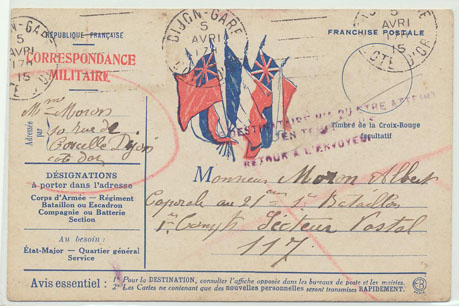 DIJON-GARE
5
AVRI
15
CÔTE D'OR
RÉPUBLIQUE FRANÇAISE
FRANCHISE POSTALE
CORRESPONDANCE
MILITAIRE
Timbre de la Croix-Rouge
facultatif
RETOUR A L'ENVOYEUR
Adressée
par
Mme Moron
10 rue de
Dijon
côte d'or
DÉSIGNATIONS
à porter dans l'adresse
Corps d'Armée — Régiment
Bataillon ou Escadron
Compagnie ou Batterie
Section
Au besoin :
État-Major — Quartier général
Service
Monsieur Moron Albert
Caporal au 21 Bataillon
Secteur Postal
117
Avis essentiel : 1° Pour la DESTINATION, consulter l'affiche apposée dans les bureaux de poste et les mairies.
2° Les Cartes ne contenant que des nouvelles personnelles seront transmises RAPIDEMENT.